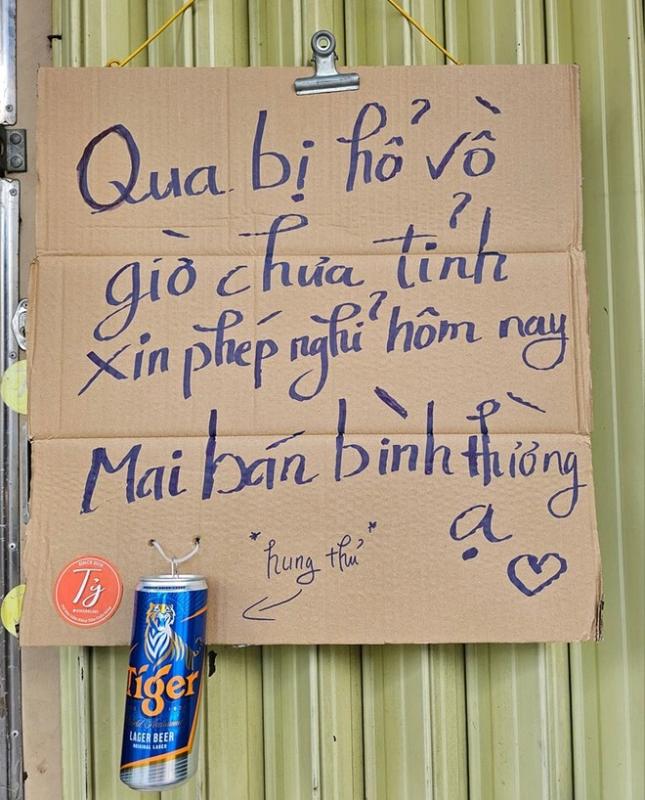 Qua bị hổ vồ
giờ chưa tỉnh
xin phép nghỉ hôm nay
Mai bán bình thường
ạ
"hung thủ"
Tỷ
Tiger
LAGER BEER
ORIGINAL LAGER